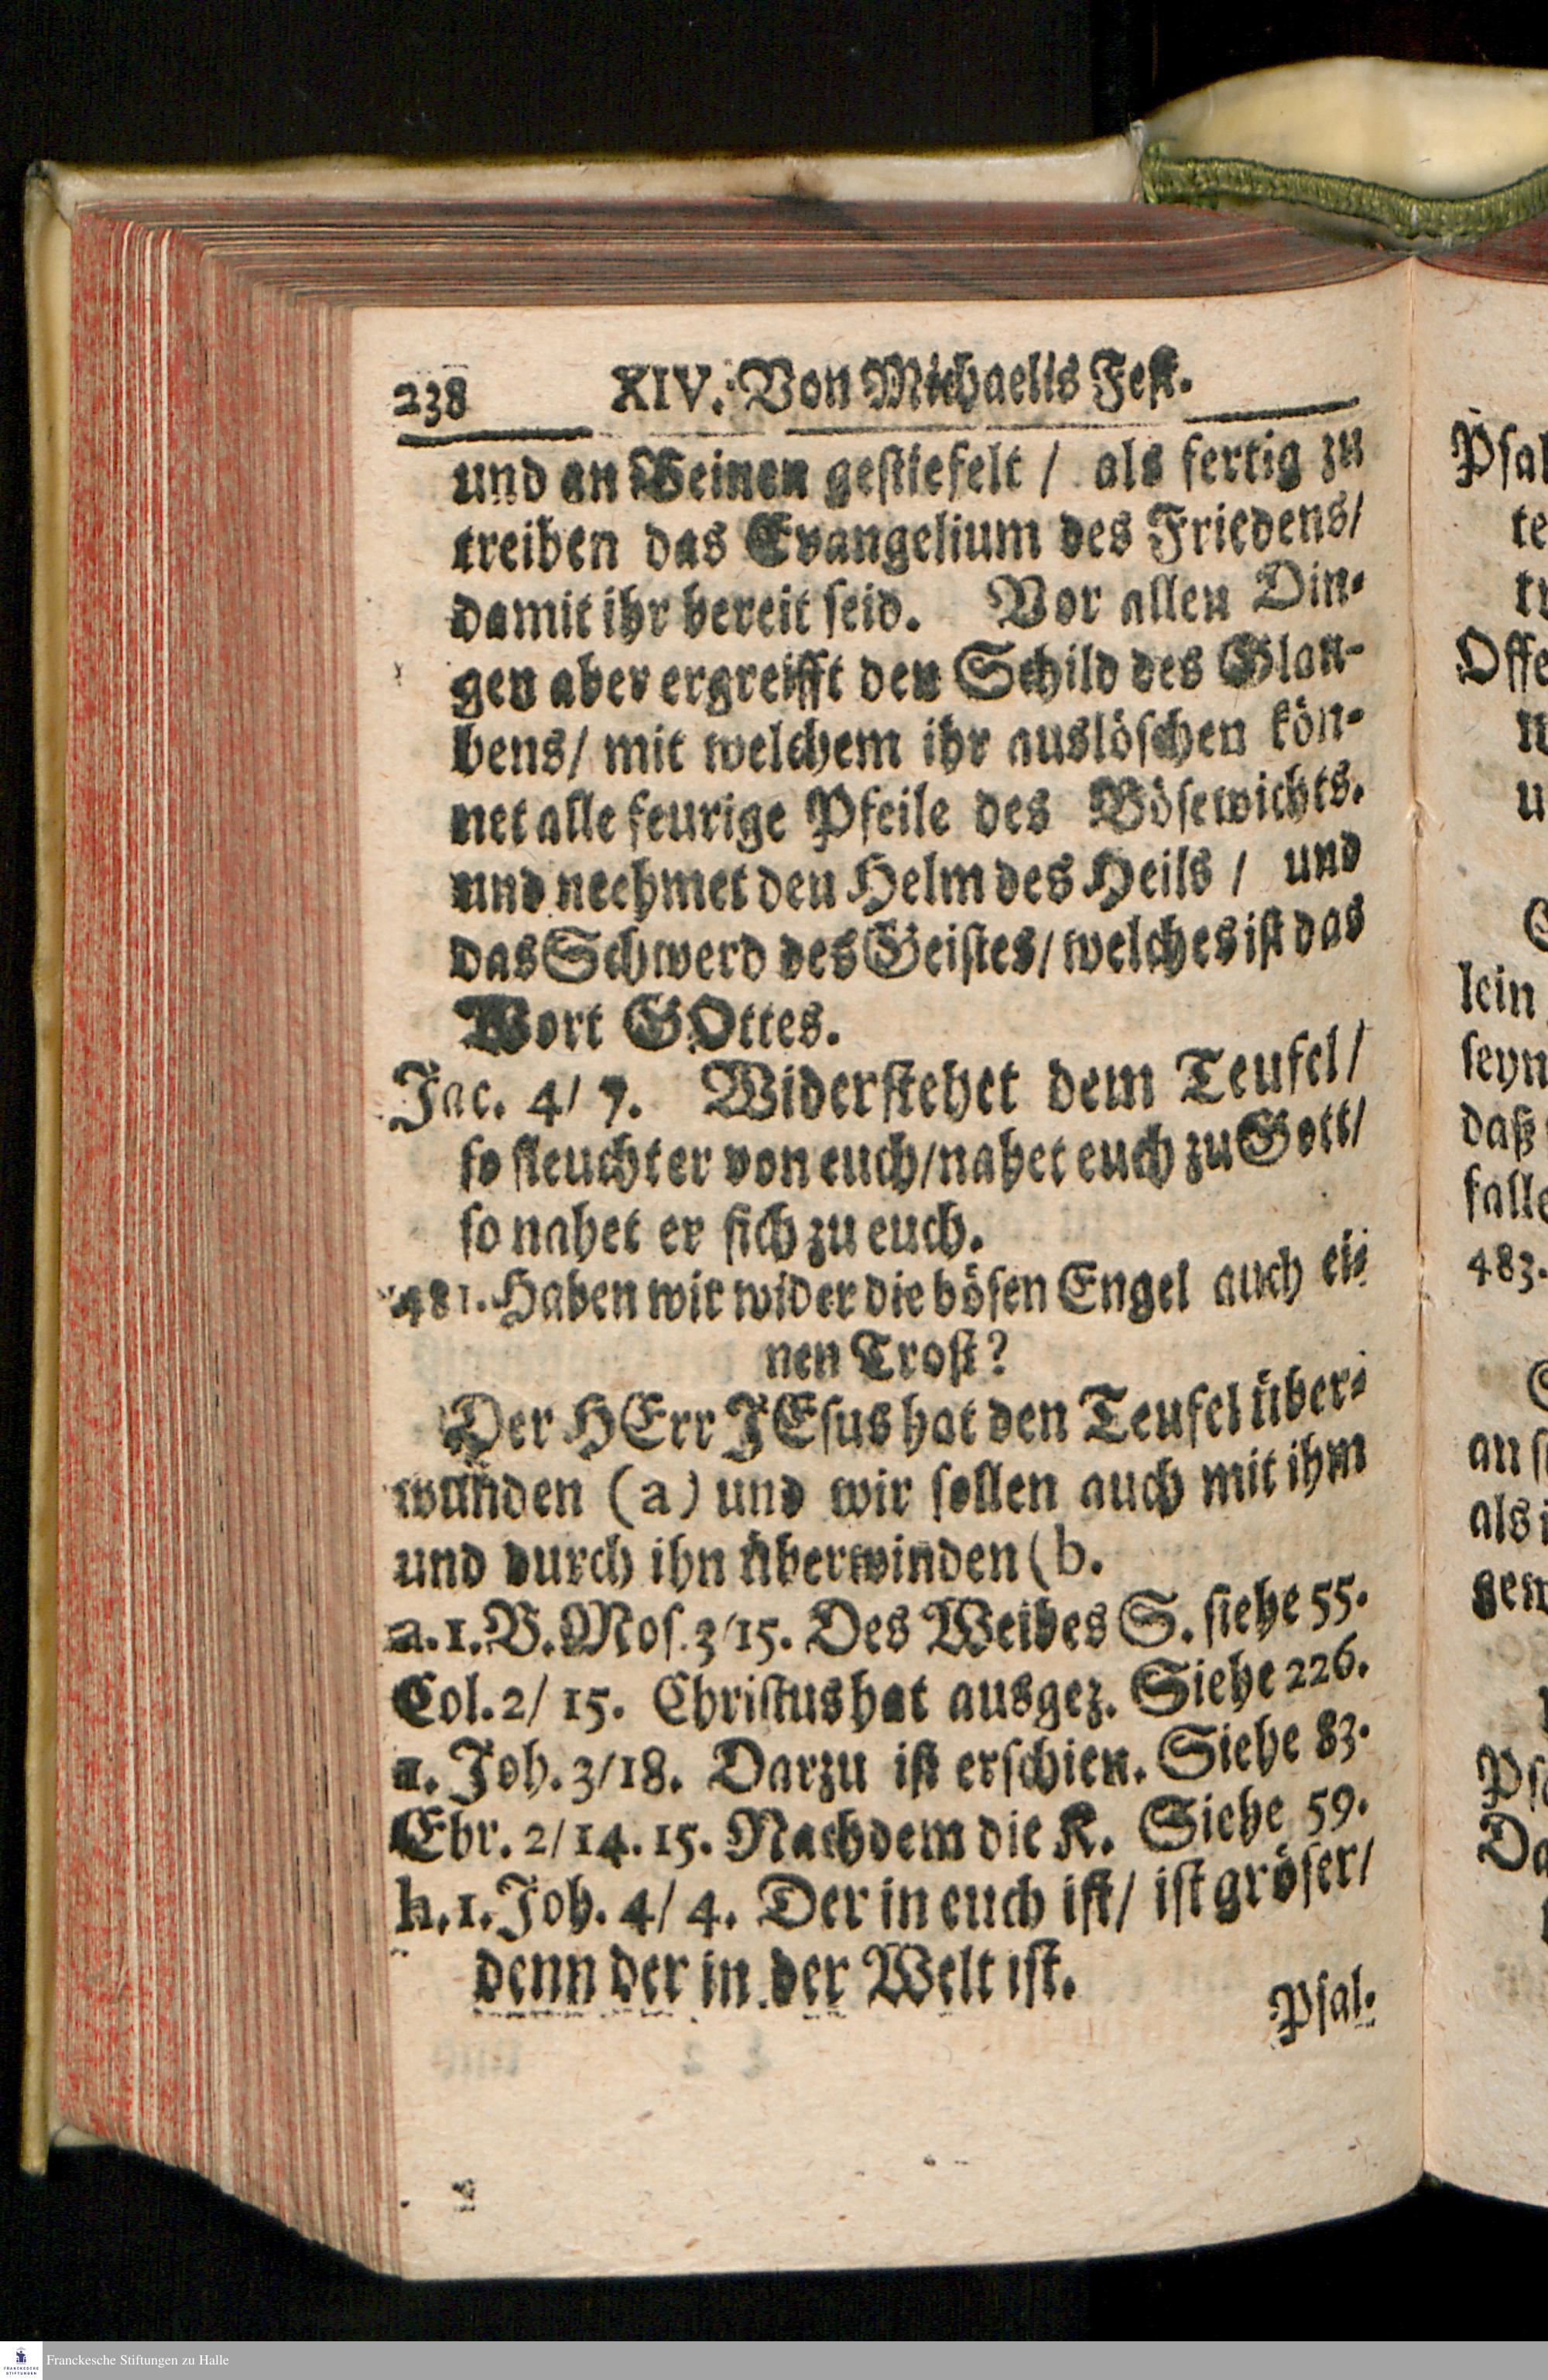 238 XIV. Von Michaelis Fest.
und an Beinen gestiefelt / als fertig zu
treiben das Evangelium des Friedens/
damit ihr bereit seid. Vor allen Din-
gen aber ergreifft den Schild des Glau-
bens/ mit welchem ihr auslöschen kön-
net alle feurige Pfeile des Bösewichts.
und neehmet den Helm des Heils / und
das Schwerd des Geistes/ welches ist das
Wort GOttes.
Jac. 4/ 7. Widerstehet dem Teufel/
so fleucht er von euch/nahet euch zu Gott/
so nahet er sich zu euch.
481. Haben wir wider die bösen Engel auch ei-
nen Trost?
Der HErr JEsus hat den Teufel über-
wunden (a) und wir sollen auch mit ihm
und durch ihn überwinden (b.
a. 1. B. Mos. 3/15. Des Weibes S. siehe 55.
Col. 2/ 15. Christus hat ausgez. Siehe 226.
1. Joh. 3/18. Darzu ist erschien. Siehe 83.
Ebr. 2/14. 15. Nachdem die K. Siehe 59.
b. 1. Joh. 4/ 4. Der in euch ist/ ist gröser/
denn der in der Welt ist.
Psal-
Psal
te
Offe
n
u
lein
seyn
daß
falle
483.
an s
als i
gew
Ps
Da
Franckesche Stiftungen zu Halle